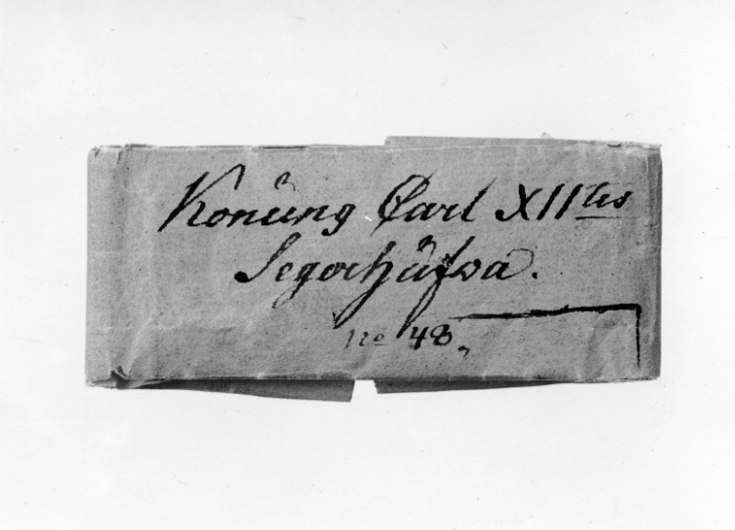 Konung Carl XIItes
Segerhufva.
no 48,